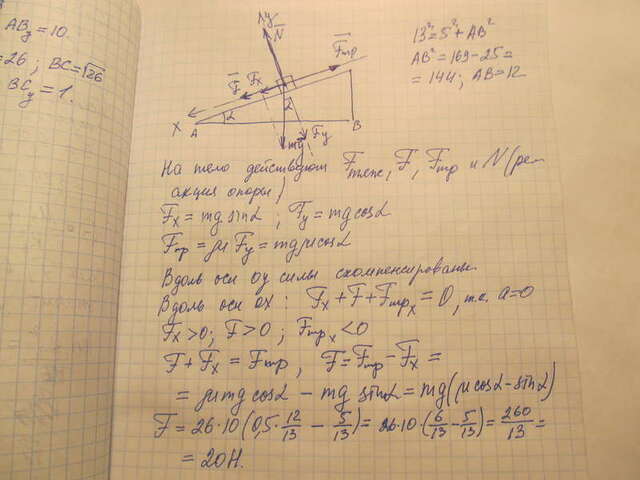 AB_y = 10.
= 26 ; BC = √26
BC_y = 1.
N y
N̄
F̄тр
F̄
F̄x
X
A
α
α
B
mḡ
F̄y
13² = 5² + AB²
AB² = 169 - 25 =
= 144 ; AB = 12
На тело действуют F̄тяж, F̄, F̄тр и N̄ (ре-
акция опоры)
F̄x = mg sinα ; F̄y = mg cosα
F̄тр = μ F̄y = mgμcosα
Вдоль оси оy силы скомпенсированы.
Вдоль оси ОX : F̄x + F̄ + F̄трx = 0, т.к. a = 0
F̄x > 0 ; F̄ > 0 ; F̄трx < 0
F + F̄x = F̄тр , F̄ = F̄тр - F̄x =
= μmg cosα - mg sinα = mg(μcosα - sinα)
F = 26·10 (0,5·12/13 - 5/13) = 26·10·(6/13 - 5/13) = 260/13 =
= 20Н.